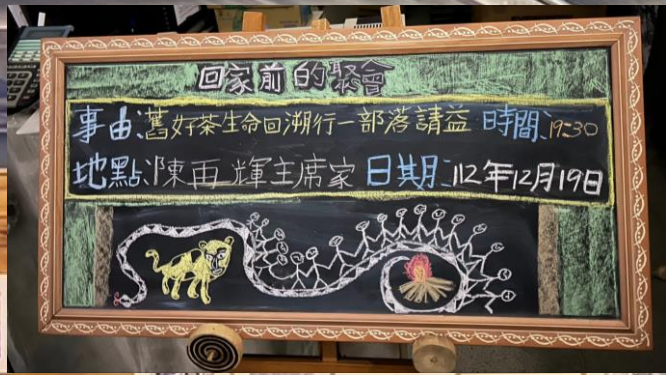 回家前的聚會
事由:舊好茶生命回溯行—部落請益 時間:19:30
地點:陳再輝主席家 日期:112年12月19日